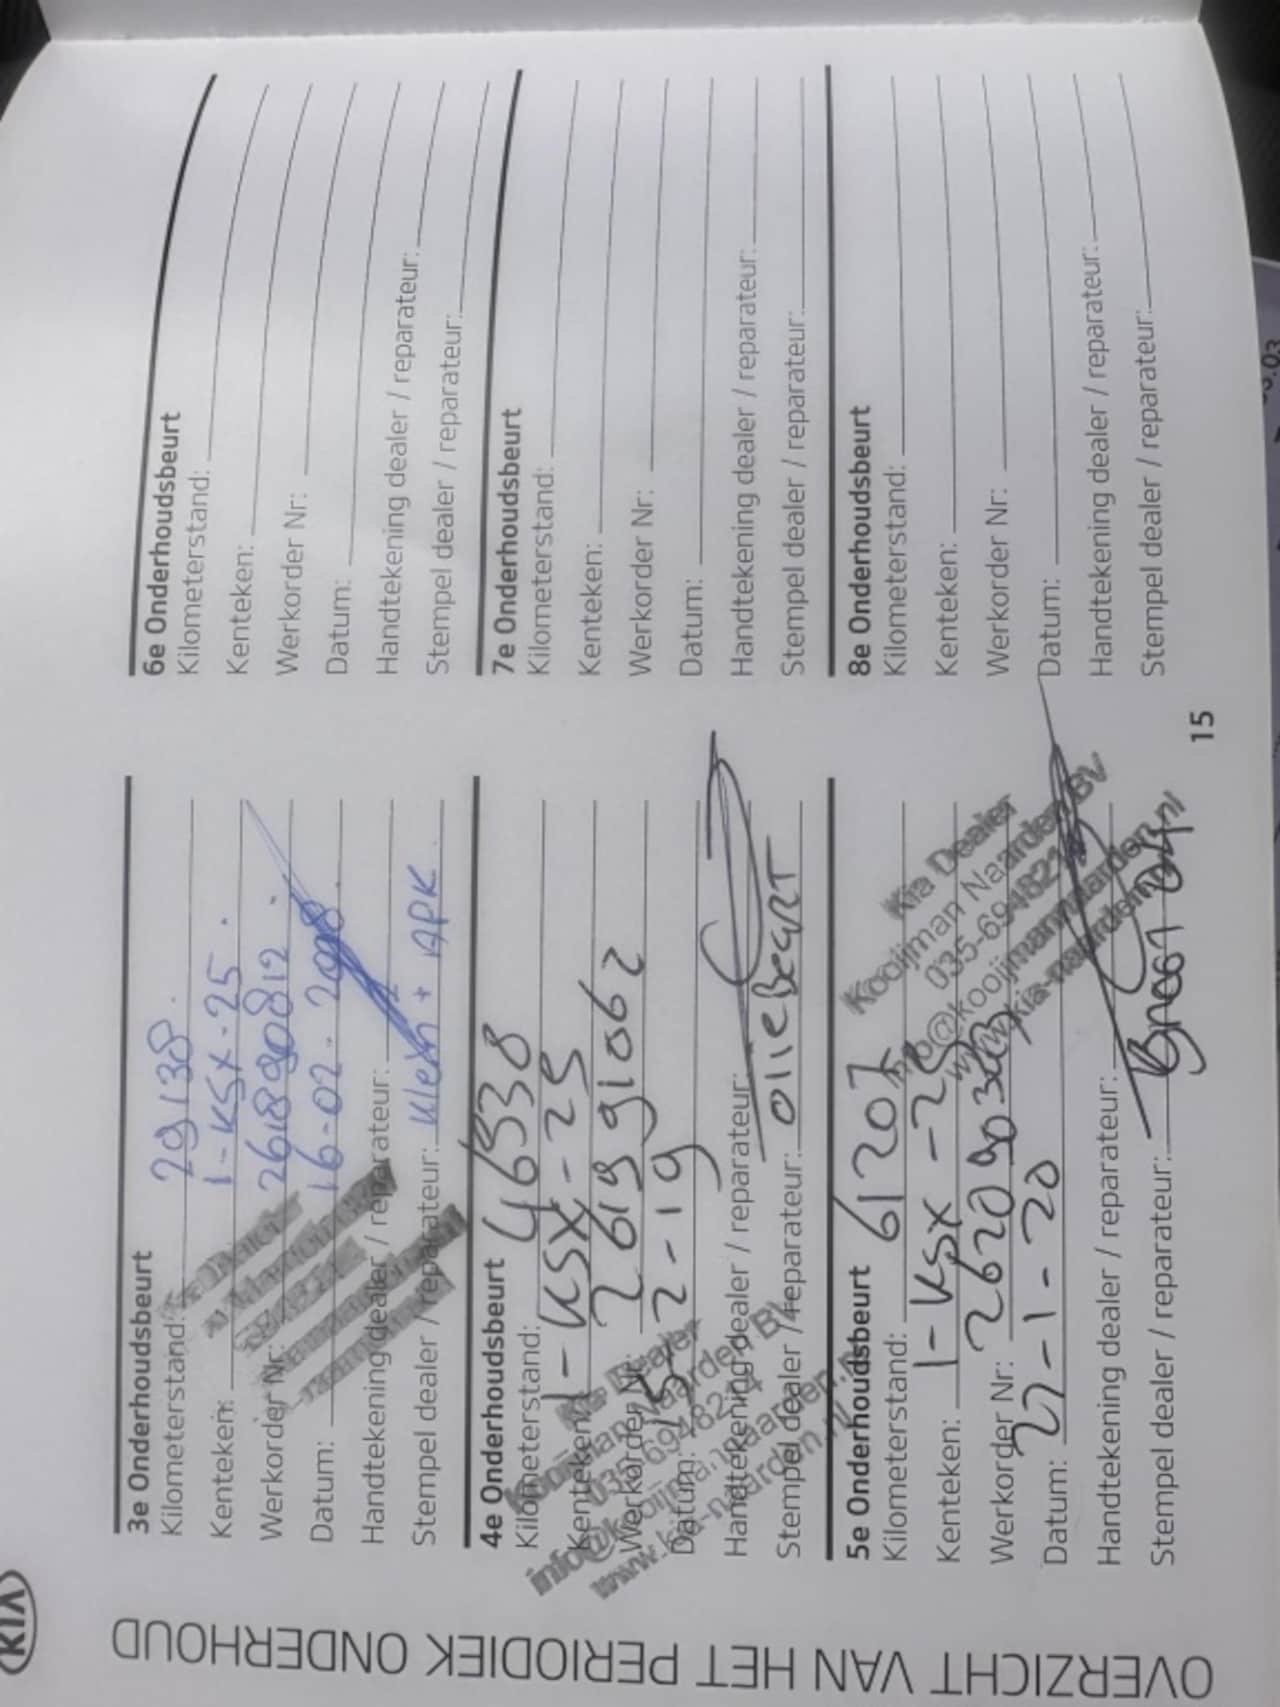 KIA
OVERZICHT VAN HET PERIODIEK ONDERHOUD
3e Onderhoudsbeurt
Kilometerstand: 29138.
Kenteken: 1-KSX-25.
Werkorder Nr: 261890812.
Datum: 16-02-
Handtekening dealer / reparateur:
Stempel dealer / reparateur: Klein + APK
4e Onderhoudsbeurt
Kilometerstand: 4638
Kenteken: 1-KSX-25
Werkorder Nr: 261991062
Datum: 15-2-19
Handtekening dealer / reparateur:
Stempel dealer / reparateur: OlieBeurt
Kia Dealer
Kooijman Naarden BV
035-6948214
info@kooijmannaarden.nl
www.kia-naarden.nl
5e Onderhoudsbeurt
Kilometerstand: 61207
Kenteken: 1-KSX-25
Werkorder Nr:
Datum: 27-1-20
Handtekening dealer / reparateur:
Stempel dealer / reparateur:
Kia Dealer
Kooijman Naarden BV
035-6948214
info@kooijmannaarden.nl
www.kia-naarden.nl
6e Onderhoudsbeurt
Kilometerstand:
Kenteken:
Werkorder Nr:
Datum:
Handtekening dealer / reparateur:
Stempel dealer / reparateur:
7e Onderhoudsbeurt
Kilometerstand:
Kenteken:
Werkorder Nr:
Datum:
Handtekening dealer / reparateur:
Stempel dealer / reparateur:
8e Onderhoudsbeurt
Kilometerstand:
Kenteken:
Werkorder Nr:
Datum:
Handtekening dealer / reparateur:
Stempel dealer / reparateur:
15